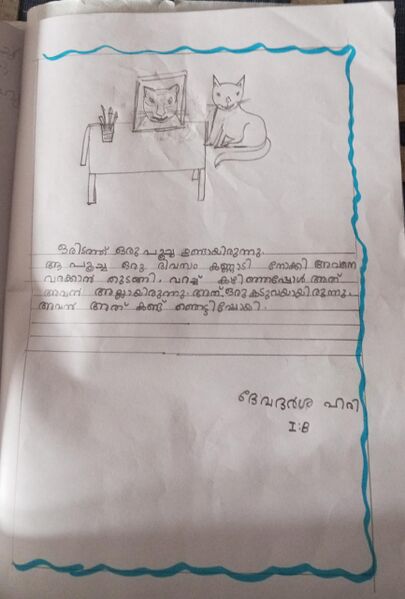 ഒരിടത്ത് ഒരു പൂച്ച ഉണ്ടായിരുന്നു.
ആ പൂച്ച ഒരു ദിവസം കണ്ണാടി നോക്കി അവനെ
വരക്കാൻ തുടങ്ങി. വരച്ച് കഴിഞ്ഞപ്പോൾ അത്
അവൻ അല്ലായിരുന്നു. അത് ഒരു കടുവയായിരുന്നു.
അവൻ അത് കണ്ട് ഞെട്ടിപ്പോയി.
ദേവദർശ ഹരി
I:B